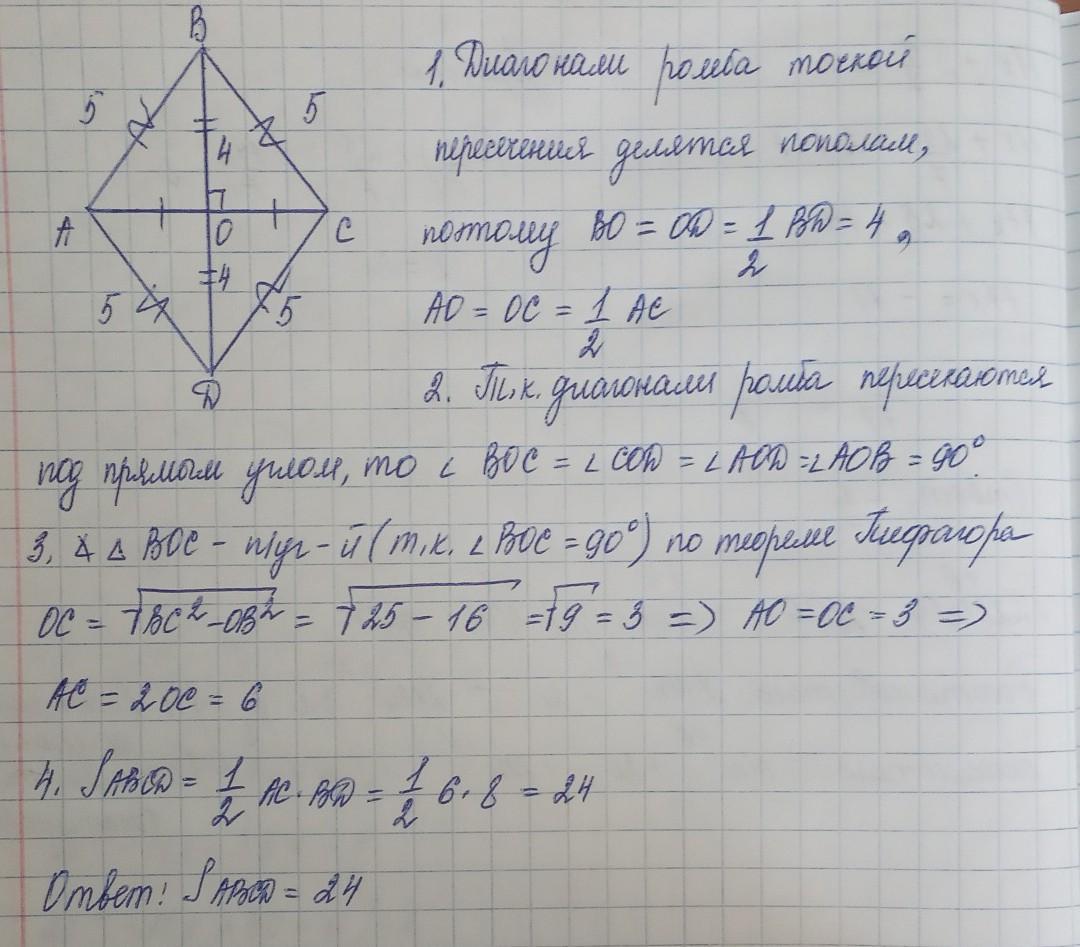 B
5
5
4
A
O
C
4
5
5
D
1. Диагонали ромба точкой
пересечения делятся пополам,
поэтому BO = OD = 1/2 BD = 4,
AO = OC = 1/2 AC
2. Т.к. диагонали ромба пересекаются
под прямым углом, то ∠ BOC = ∠ COD = ∠ AOD = ∠ AOB = 90°.
3. ∡ △ BOC - п/уг-й (т.к. ∠ BOC = 90°) по теореме Пифагора
OC = √BC² - OB² = √25 - 16 = √9 = 3 => AO = OC = 3 =>
AC = 2OC = 6
4. S ABCD = 1/2 AC · BD = 1/2 6 · 8 = 24
Ответ: S ABCD = 24